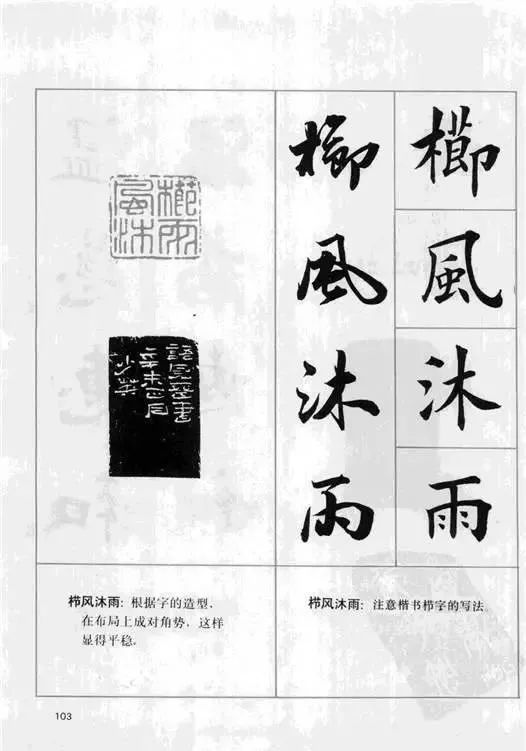 櫛風沐雨
櫛風沐雨
櫛雨
風沐
辛未正月
栉风沐雨：根据字的造型，
在布局上成对角势，这样
显得平稳。
栉风沐雨：注意楷书栉字的写法
103